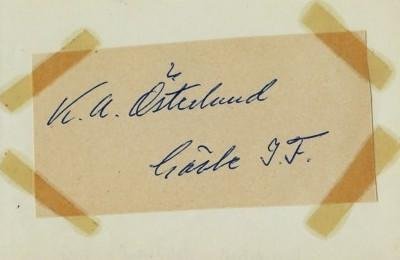 K. A. Österlund
Gävle I.F.